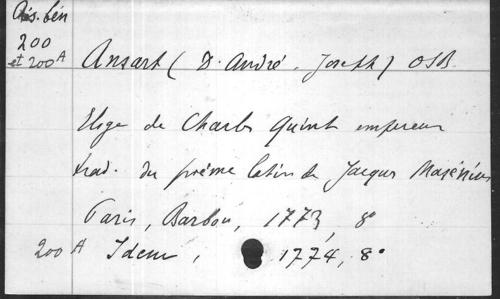 Rés. bén
200
et 200 A
Ansart (D. André-Joseph) OSB.
Eloge de Charles Quint empereur
trad. du poème latin de Jacques Masénius
Paris, Barbou, 1773, 8°
200 A Idem, 1774, 8°